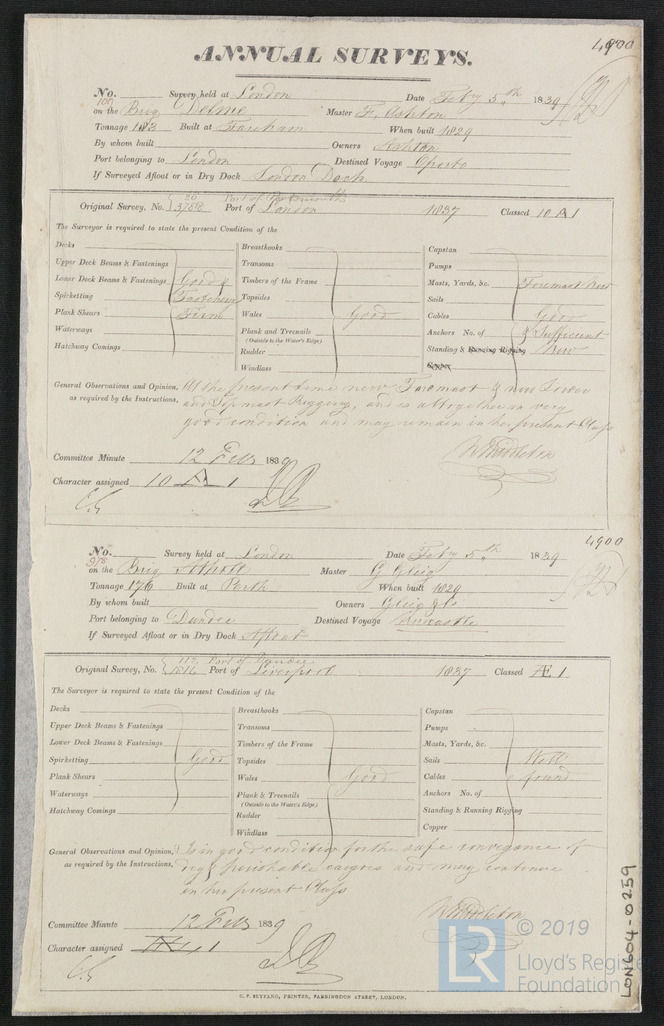 4900
ANNUAL SURVEYS.
No. Survey held at London Date Feby 5th 1839
on the Brig Delme Master F. Ashton
Tonnage 183 Built at Fareham When built 1829
By whom built Owners Ashton
Port belonging to London Destined Voyage Oporto
If Surveyed Afloat or in Dry Dock London Dock
Port of Portsmouth
Original Survey, No. 3788 Port of London 1837 Classed 10 A 1
The Surveyor is required to state the present Condition of the
Decks Breasthooks Capstan
Upper Deck Beams & Fastenings Transoms Pumps
Lower Deck Beams & Fastenings Good & Timbers of the Frame Masts, Yards, &c. Foremast New
Spirketting Fastenings Topsides Sails
Plank Shears Firm Wales Good Cables Good
Waterways Plank and Treenails Anchors No. of & Sufficient
(Outside to the Water's Edge)
Hatchway Comings Rudder Standing & Running Rigging New
Windlass Copper
General Observations and Opinion, At the present time new Foremast & new Lower
as required by the Instructions, and Topmast Rigging, and is altogether in very
good condition and may remain in her present Class
Committee Minute 12 Feb 1839
Character assigned 10 A 1
4900
No. Survey held at London Date Feby 5th 1839
on the Brig Atholl Master G Gleig
Tonnage 176 Built at Perth When built 1829
By whom built Owners Gleig & Co
Port belonging to Dundee Destined Voyage Newcastle
If Surveyed Afloat or in Dry Dock Afloat
112 Port of Dundee
Original Survey, No. Port of Liverpool 1837 Classed Æ 1
The Surveyor is required to state the present Condition of the
Decks Breasthooks Capstan
Upper Deck Beams & Fastenings Transoms Pumps
Lower Deck Beams & Fastenings Timbers of the Frame Masts, Yards, &c.
Spirketting Good Topsides Sails Well
Plank Shears Wales Good Cables found
Waterways Plank & Treenails Anchors No. of
(Outside to the Water's Edge)
Hatchway Comings Rudder Standing & Running Rigging
Windlass Copper
General Observations and Opinion, Is in good condition for the safe conveyance of
as required by the Instructions, dry & perishable cargoes and may continue
in her present Class
Committee Minute 12 Feb 1839
Character assigned Æ 1
G. F. SEYFANG, PRINTER, FARRINGDON STREET, LONDON.
LON604-0259
LR
© 2019
Lloyd's Register
Foundation